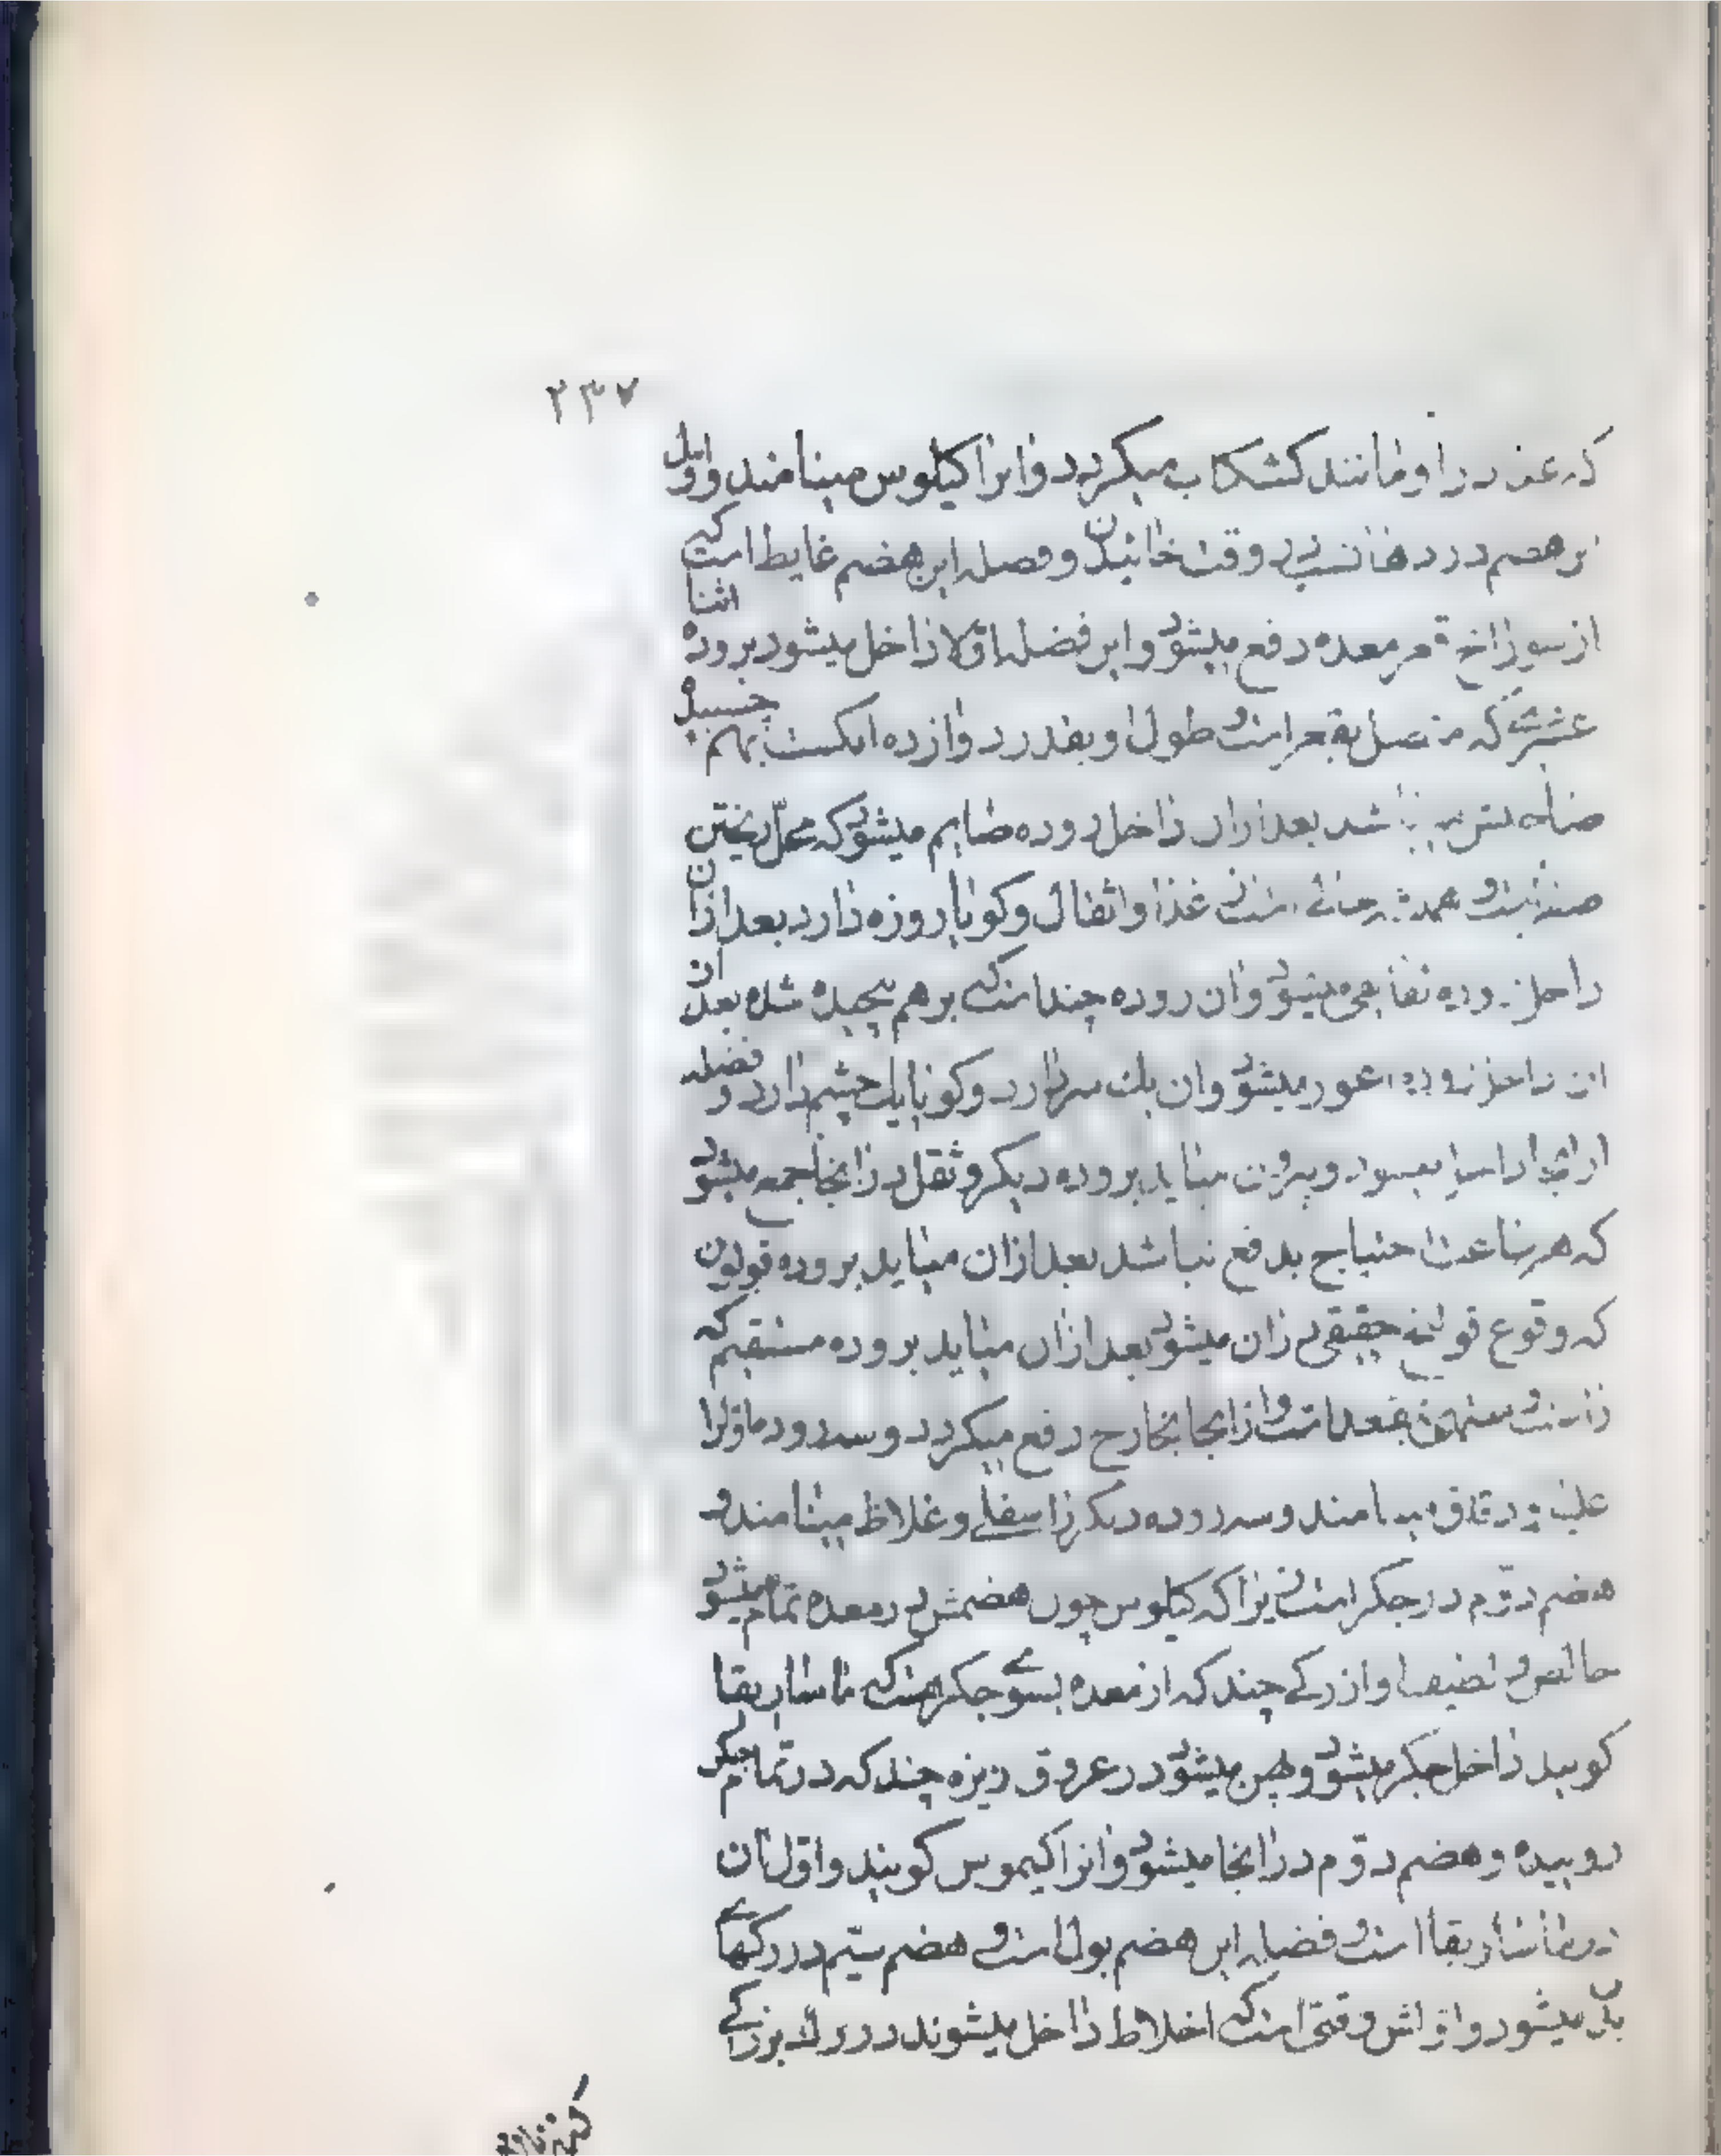 ۲۳۷
که غذا در او مانند کشکاب میکردد و انرا کیلوس مینامند و اول
این هضم در دهانست در وقت خائیدن و فضله این هضم غایط است که
از سوراخ قعر معده دفع میشود و این فضله اولا داخل میشود بروده اثنا
عشر که متصل بقعر است و طول او بقدر دوازده انکشت بهم چسبیده
صاحبش میباشد بعد ازان داخل روده صایم میشود که محل ریختن
صفراست و همیشه خالی است از غذا و اثفال و کویا روزه دارد بعد ازان
داخل روده لفایفی میشود و ان روده چندانست که برهم پیچیده شده بعد از
ان داخل روده اعور میشود و ان یک سر دارد و کویا یک چشم دارد و فضله
از انجا داخل میشود و بیرون میاید بروده دیکر و ثقل در انجا جمع میشود
که هر ساعت احتیاج بدفع نباشد بعد ازان میاید بروده قولون
که وقوع قولنج حقیقی دران میشود بعد ازان میاید بروده مستقیم که
راست و منتهی بمقعد است و از انجا بخارج دفع میکردد و سه روده اول را
علیا و دقاق مینامند و سه روده دیکر را سفلی و غلاظ مینامند و
هضم دوم در جکر است زیرا که کیلوس چون هضمش در معده تمام میشود
خالص و لطیف او از رکی چند که از معده بسوی جکر هست که ماساریقا
کویند داخل جکر میشود و پهن میشود در عروق ریزه چند که در تمام جکر
روییده و هضم دوم در انجا میشود و انرا کیموس کویند و اول ان
در ماساریقا است و فضله این هضم بول است و هضم سیم در رکهای
بدن میشود و اولش وقتی است که اخلاط داخل میشوند در رک بزرکی